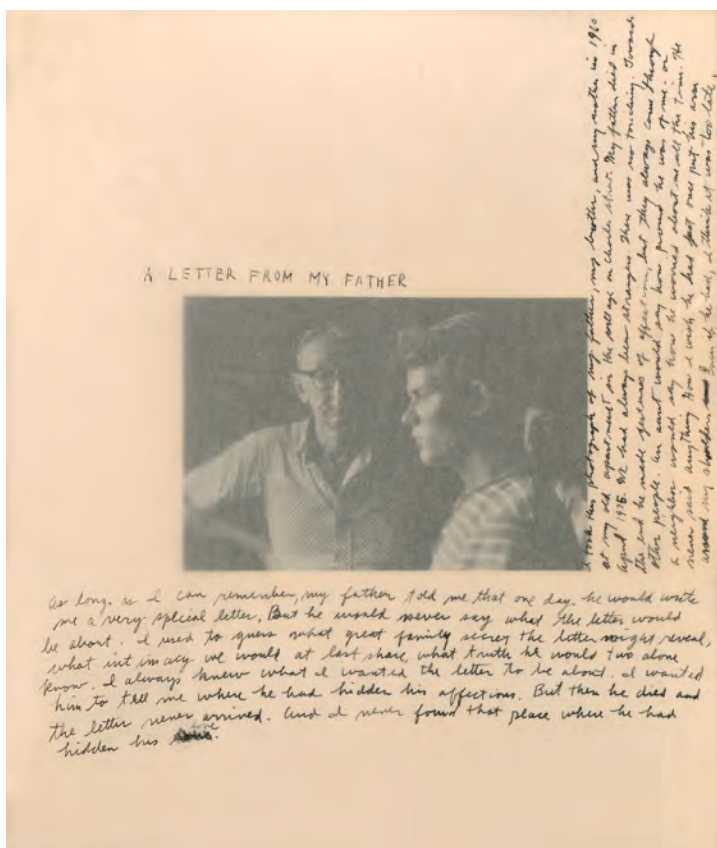 A LETTER FROM MY FATHER
As long as I can remember, my father told me that one day he would write
me a very special letter. But he would never say what the letter would
be about. I used to guess what great family secret the letter might reveal,
what intimacy we would at last share, what truth he would two alone
know. I always knew what I wanted the letter to be about. I wanted
him to tell me where he had hidden his affections. But then he died and
the letter never arrived. And I never found that place where he had
hidden his love.
I took this photograph of my father, my brother, and my mother in 1960
at my old apartment on the on Charles Street. My father died in
April 1975. We had always been strangers. There was no touching. Toward
the end he made gestures of affection, but they always came through
other people. An aunt would say how proud he was of me. or
a neighbor would say how he worried about me all the time. He
never said anything. How I wish he had just once put his arm
around my shoulders. Even if he had, I think it was too late.